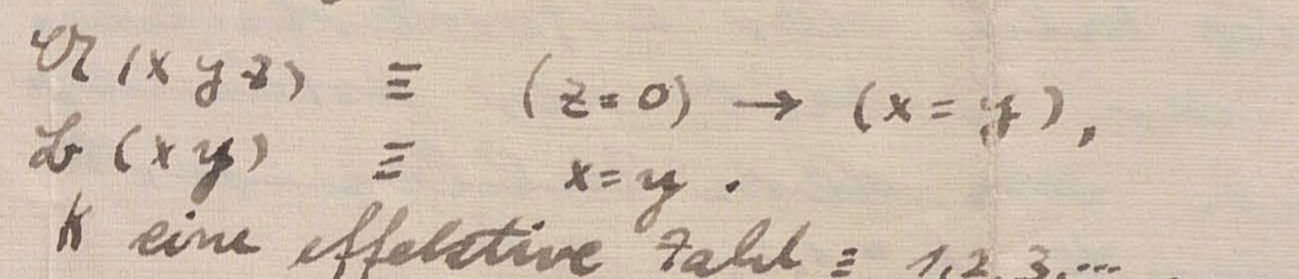 𝔄 (x y z) ≡ (z = 0) → (x = y),
𝔅 (x y) ≡ x = y.
K eine effektive Zahl = 1, 2, 3, ...